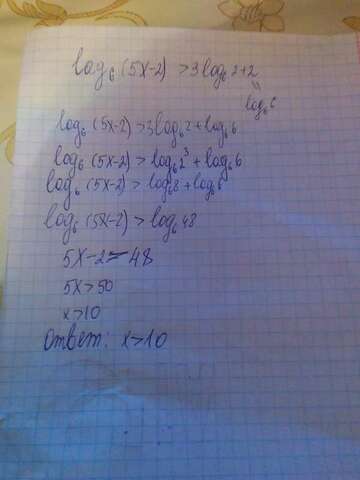 log₆(5x-2) > 3log₆2+2
log₆6
log₆(5x-2)>3log₆2+log₆6
log₆(5x-2)>log₆2³+log₆6
log₆(5x-2)>log₆8+log₆6
log₆(5x-2)>log₆48
5x-2>48
5x>50
x>10
Ответ: x>10